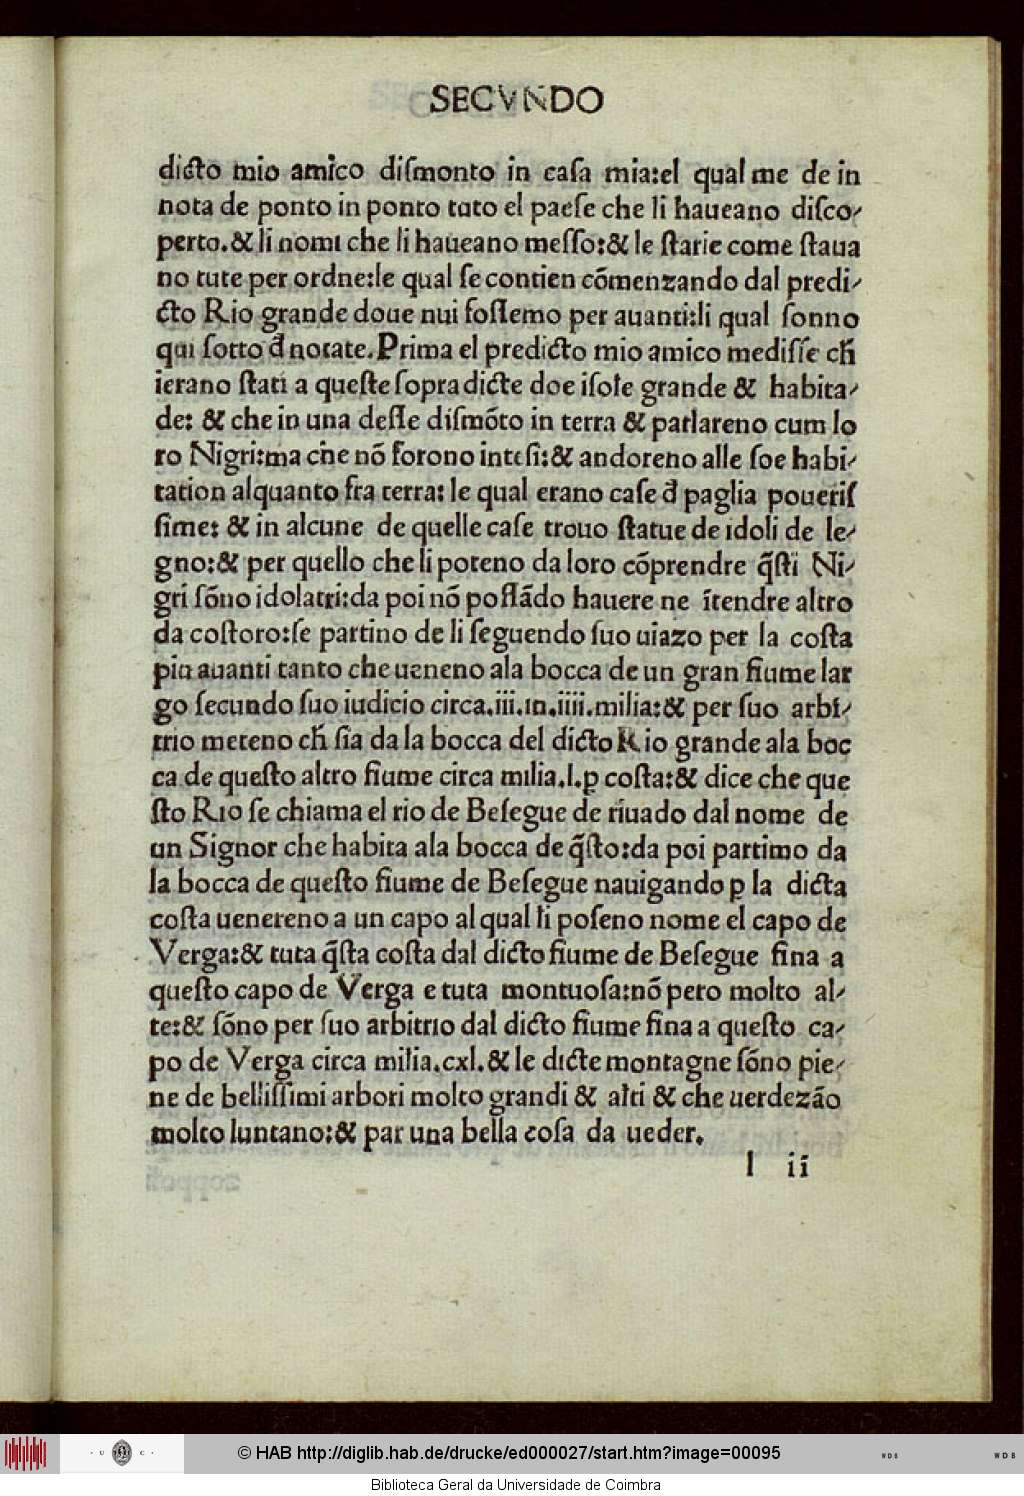 SECVNDO
dicto mio amico diſmonto in caſa mia:el qual me de in
nota de ponto in ponto tuto el paeſe che li haueano diſco⸗
perto.& li nomi che li haueano meſſo:& le ſtarie come ſtaua
no tute per ordne:le qual ſe contien cōmenzando dal predi⸗
cto Rio grande doue nui foſſemo per auanti:li qual ſonno
qui ſotto đ notate.Prima el predicto mio amico mediſſe cħ
ierano ſtati a queſte ſopradicte doe iſole grande & habita⸗
de: & che in una deſſe diſmōto in terra & parlareno cum lo
ro Nigri:ma che nō forono inteſi:& andoreno alle ſoe habi⸗
tation alquanto fra terra: le qual erano caſe đ paglia poueriſ
ſime: & in alcune de quelle caſe trouo ſtatue de idoli de le⸗
gno:& per quello che li poteno da loro cōprendre q̄ſti Ni⸗
gri ſōno idolatri:da poi nō poſſādo hauere ne ītendre altro
da coſtoro:ſe partino de li ſeguendo ſuo uiazo per la coſta
piu auanti tanto che ueneno ala bocca de un gran fiume lar
go ſecundo ſuo iudicio circa.iii.in.iiii.milia:& per ſuo arbi⸗
trio meteno cħ ſia da la bocca del dicto Rio grande ala boc
ca de queſto altro fiume circa milia.l.ꝑ coſta:& dice che que
ſto Rio ſe chiama el rio de Beſegue de riuado dal nome de
un Signor che habita ala bocca de q̄ſto:da poi partimo da
la bocca de queſto fiume de Beſegue nauigando ꝑ la dicta
coſta uenereno a un capo al qual li poſeno nome el capo de
Verga:& tuta q̄ſta coſta dal dicto fiume de Beſegue fina a
queſto capo de Verga e tuta montuoſa:nō pero molto al⸗
te:& ſōno per ſuo arbitrio dal dicto fiume fina a queſto ca⸗
po de Verga circa milia.cxl.& le dicte montagne ſōno pie⸗
ne de belliſſimi arbori molto grandi & alti & che uerdezāo
molto luntano:& par una bella coſa da ueder.
l ii
· U · C ·
© HAB http://diglib.hab.de/drucke/ed000027/start.htm?image=00095
WDB
WDB
Biblioteca Geral da Universidade de Coimbra